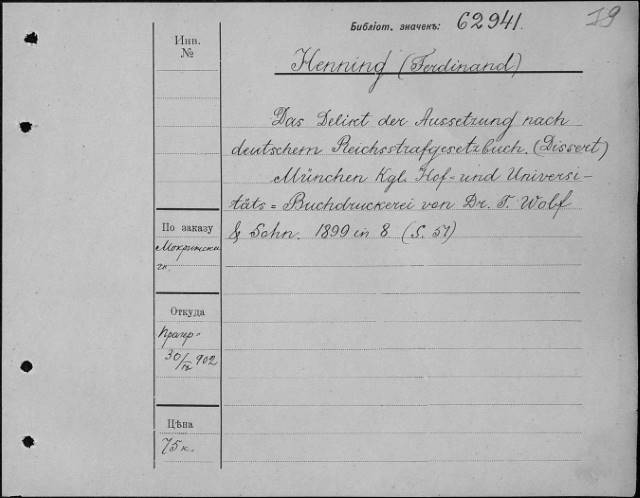 Библіот. значекъ: 62941.
79
Инв.
№
Henning (Ferdinand)
Das Delikt der Aussetzung nach
deutschem Reichsstrafgesetzbuch. (Dissert)
München Kgl. Hof- und Universi-
täts= Buchdruckerei von Dr. F. Wolf
& Sohn. 1899 in 8 (S. 51)
По заказу
Откуда
30/IV 902
Цѣна
75 к.